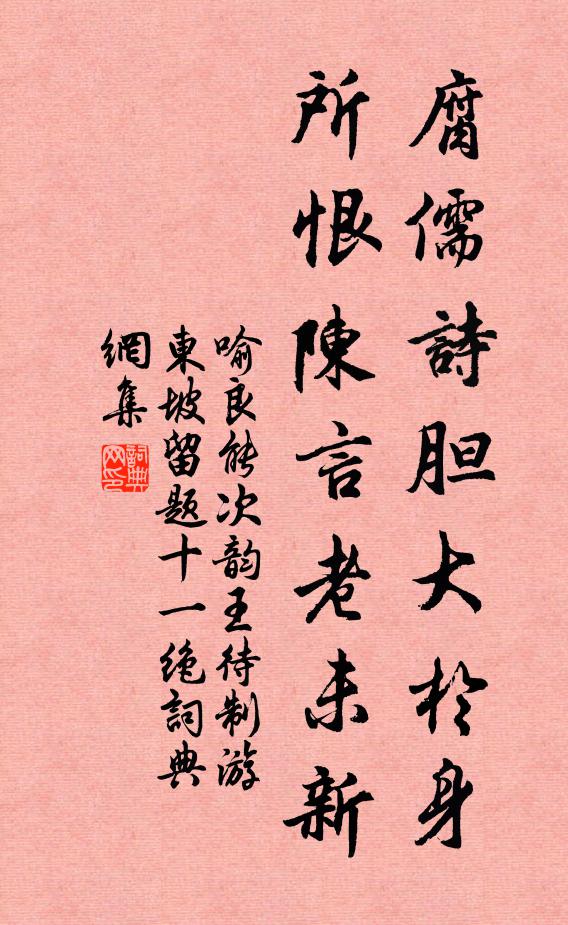 腐儒詩胆大於身
所恨陳言老未新
喻良能次韵王待制游
東坡留题十一绝詞典
網集
詞典
网印